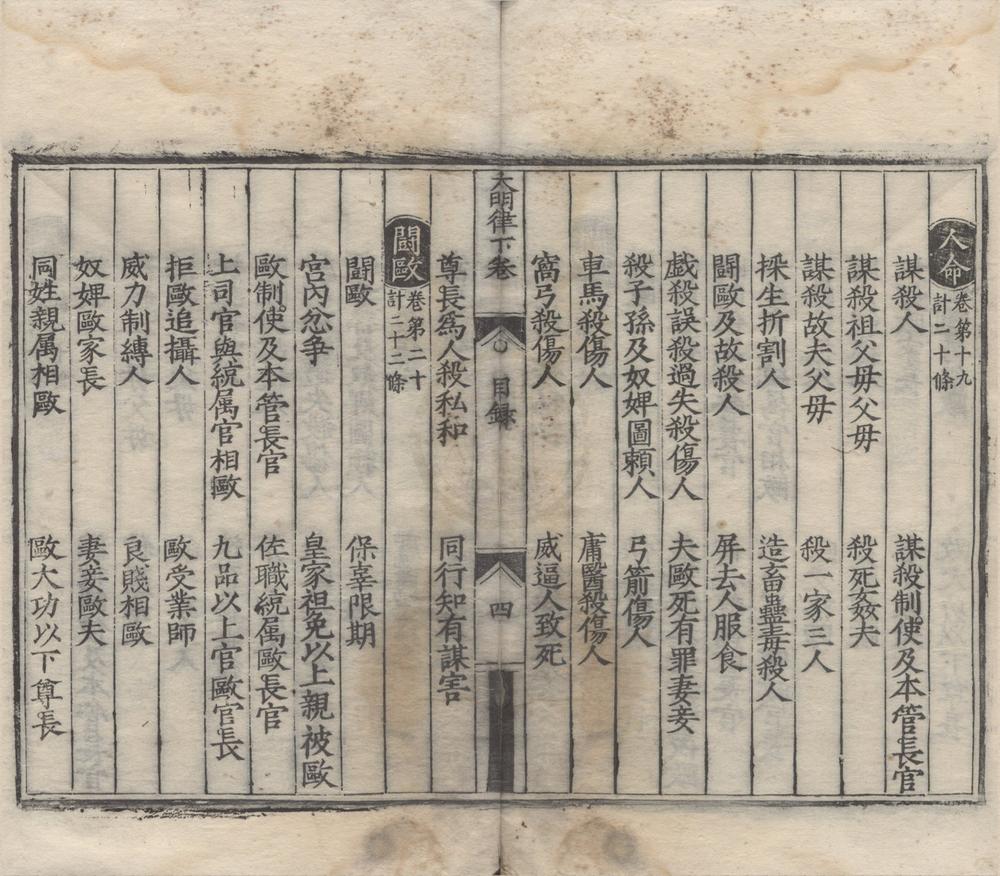 人命 卷第十九 計二十條
謀殺人 謀殺制使及本管長官
謀殺祖父母父母 殺死姦夫
謀殺故夫父母 殺一家三人
採生折割人 造畜蠱毒殺人
鬪歐及故殺人 屏去人服食
戱殺誤殺過失殺傷人 夫歐死有罪妻妾
殺子孫及奴婢圖賴人 弓箭傷人
車馬殺傷人 庸醫殺傷人
窩弓殺傷人 威逼人致死
尊長爲人殺私和 同行知有謀害
大明律下卷 目録 四
鬪歐 卷第二十 計二十二條
鬪歐 保辜限期
宮內忿争 皇家袒免以上親被歐
歐制使及本管長官 佐職統属歐長官
上司官與統属官相歐 九品以上官歐官長
拒歐追攝人 歐受業師
威力制縛人 良賤相歐
奴婢歐家長 妻妾歐夫
同姓親属相歐 歐大功以下尊長